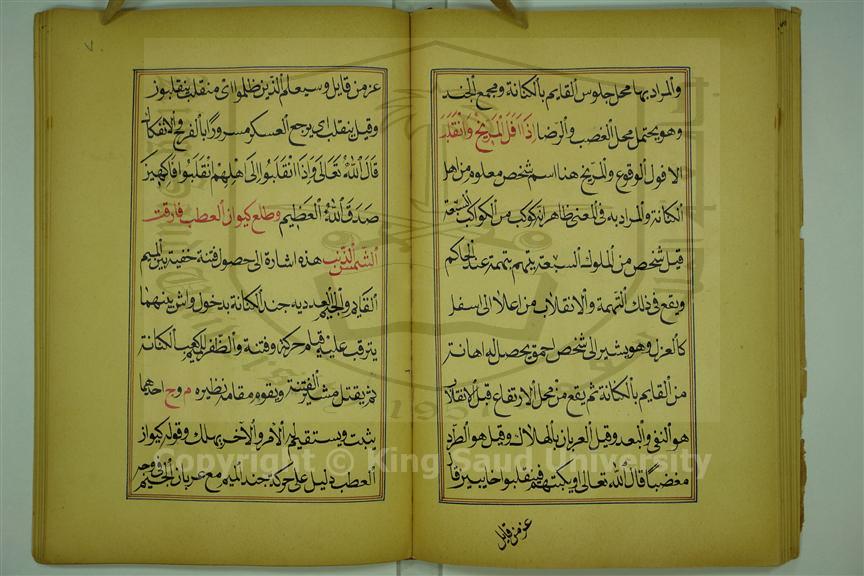 والمراد بها محل جلوس القايم بالكنانة ومجمع الجند
وهو يحتمل محل الغضب والرضا اذا افل المريخ وانقلب
الافول الوقوع والمريخ هنا اسم شخص معلوم من اهل
الكنانة والمراد به في المعنى ظاهر انه كوكب من الكواكب السبعة
قيل شخص من الملوك السبعة يتهم بتهمة عند الحاكم
ويقع في ذلك التهمة والانقلاب من اعلا الى اسفل
كالعزل وهو يشير الى شخص احمق يحصل له اهانة
من القايم بالكنانة ثم يقع من محل الارتفاع قيل الانقلاب
هو النفي والبعد وقيل العربان بالهلاك وقيل هو الطرد
مغضبا قال الله تعالى او يكبتهم فينقلبوا خايبين وقال
عز من قايل
٧
عز من قايل وسيعلم الذين ظلموا اي منقلب ينقلبون
وقيل ينقلب اي يرجع العسكر مسرورا بالفرح والانفكاك
قال الله تعالى واذا انقلبوا الى اهلهم انقلبوا فاكهين
صدق الله العظيم وطلع كيوان العطب فارقت
الشمس الذنب هذه اشارة الى حصول فتنة خفية بين الميم
القايم والجيم العددية جند الكنانة بدخول واش بينهما
يترقب عليه قيام حركة وفتنة والظفر للميم الكنانة
ثم يقتل مشير الفتنة ويقوم مقامه نظيره م وج احدهما
يثبت ويستقيم له الامر والآخر يهلك وقوله كيوان
العطب دليل على حركة جند الميم مع عربان الجيم
Copyright © King Saud University